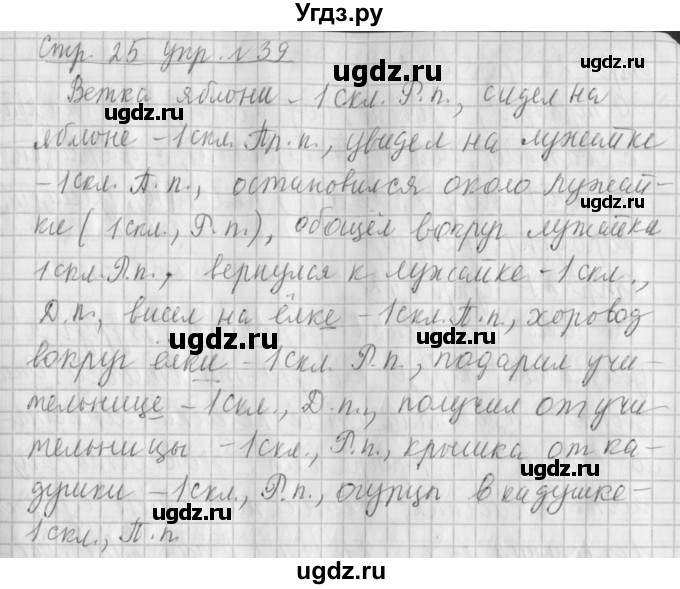 Угдз.ру
Стр. 25 упр. № 39
Ветка яблони - 1 скл. Р.п., сидел на
яблоне - 1 скл. Пр. п., увидел на лужайке
- 1 скл. П. п., остановился около лужай-
ки (1 скл., Р. п.), обошёл вокруг лужайки
1 скл. Р.п., вернулся к лужайке - 1 скл.,
Д. п., висел на ёлке - 1 скл. П. п., хоровод
вокруг ёлки - 1 скл. Р. п., подарил учи-
тельнице - 1 скл., Д. п., получил от учи
тельницы - 1 скл., Р. п., крышка от ка-
душки - 1 скл., Р. п., огурцы в кадушке -
1 скл., П. п.
ugdz.ru
ugdz.ru
ugdz.ru
ugdz.ru
ugdz.ru
ugdz.ru
ugdz.ru
ugdz.ru
ugdz.ru
ugdz.ru